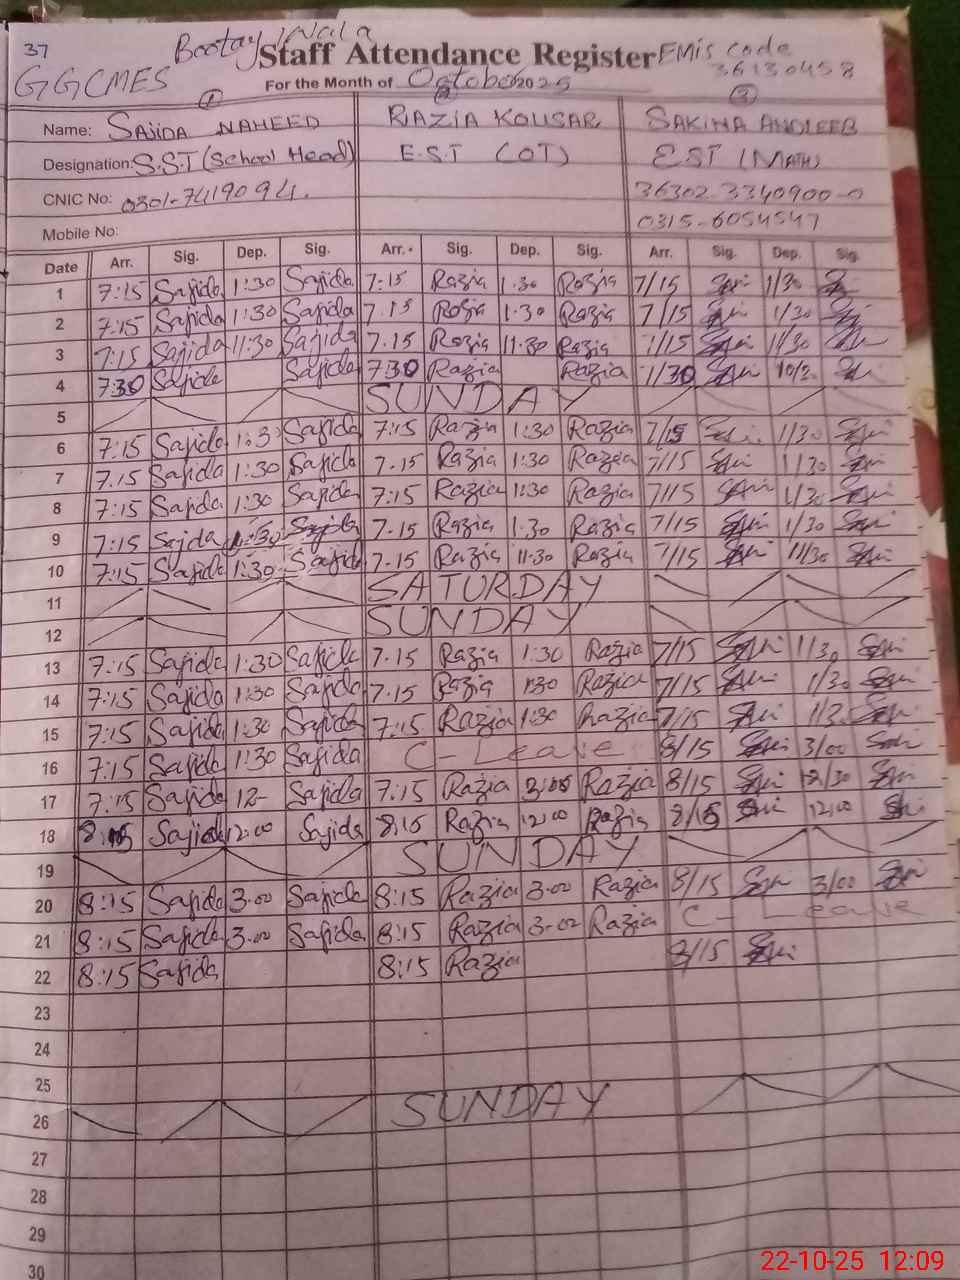 37 Bootay Wala
Staff Attendance Register EMis code
GGCMES For the Month of October 2025 36130458
1 2 3
Name: SAJIDA NAHEED RAZIA KOUSAR SAKINA ANDLEEB
Designation: S.S.T (School Head) E.S.T (OT) EST (Math)
CNIC No: 0301-7419094. 36302-3340900-0
Mobile No: 0315-6054547
Date Arr. Sig. Dep. Sig. Arr. Sig. Dep. Sig. Arr. Sig. Dep. Sig.
1 7:15 Sajida 1:30 Sajida 7:15 Razia 1.30 Razia 7/15 1/30
2 7:15 Sajida 1:30 Sajida 7.15 Razia 1.30 Razia 7/15 1/30
3 7:15 Sajida 11:30 Sajida 7.15 Razia 11.30 Razia 7/15 11/30
4 7:30 Sajida Sajida 7:30 Razia Razia 7/30
5 SUNDAY
6 7:15 Sajida 1:30 Sajida 7:15 Razia 1:30 Razia 7/15 1/30
7 7.15 Sajida 1:30 Sajida 7.15 Razia 1:30 Razia 7/15 1/30
8 7:15 Sajida 1:30 Sajida 7:15 Razia 1:30 Razia 7/15 1/30
9 7:15 Sajda Sajida 7.15 Razia 1.30 Razia 7/15 1/30
10 7:15 Sajida 1:30 Sajida 7.15 Razia 11:30 Razia 7/15 11/30
11 SATURDAY
12 SUNDAY
13 7:15 Sajida 1:30 Sajida 7.15 Razia 1:30 Razia 7/15 1/30
14 7:15 Sajida 1:30 Sajida 7.15 Razia 1:30 Razia 7/15 1/30
15 7:15 Sajida 1:30 Sajida 7:15 Razia 1:30 Razia 7/15 1/30
16 7:15 Sajida 1:30 Sajida C-Leave 8/15 3/00
17 7:15 Sajida 12- Sajida 7:15 Razia Razia 8/15 12/30
18 8:15 Sajida 12:00 Sajida 8:15 Razia 12:00 Razia 8/15 12,00
19 SUNDAY
20 8:15 Sajida 3.00 Sajida 8:15 Razia 3.00 Razia 8/15 3/00
21 8:15 Sajida 3.00 Sajida 8:15 Razia 3-00 Razia C-Leave
22 8:15 Sajida 8:15 Razia 8/15
23
24
25
26 SUNDAY
27
28
29
30
22-10-25 12:09